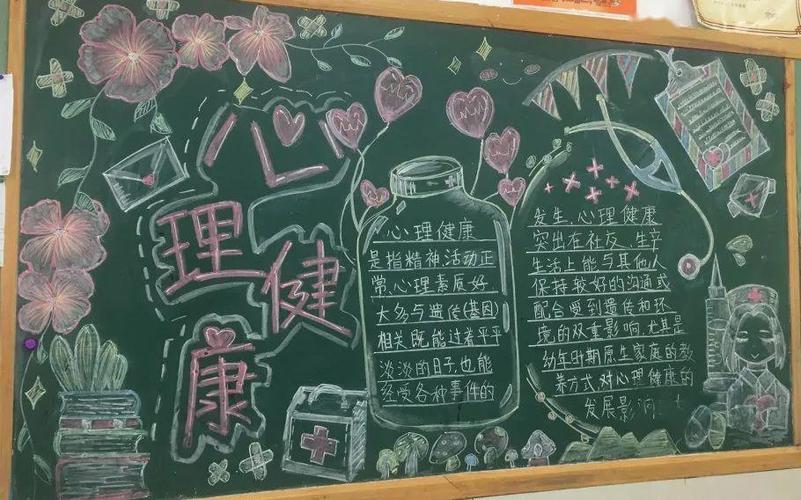 心
理
健
康
心理健康
是指精神活动正
常,心理素质好
大多与遗传(基因)
相关既能过着平平
淡淡的日子,也能
经受各种事件的
发生.心理健康
突出在社友、生产
生活上能与其他人
保持较好的沟通或
配合受到遗传和环
境的双重影响,尤其是
幼年时期原生家庭的教
养方式,对心理健康的
发展影响